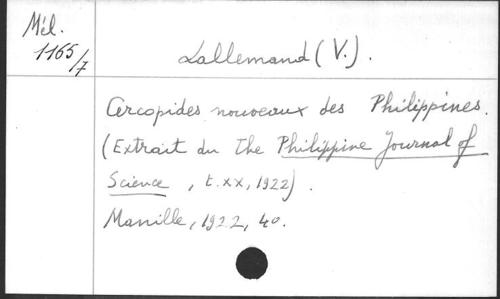 Mél.
1165/7
Lallemand (V.).
Cercopides nouveaux des Philippines.
(Extrait du the Philippine Journal of
Science, t. XX, 1922).
Manille, 1922, 4o.